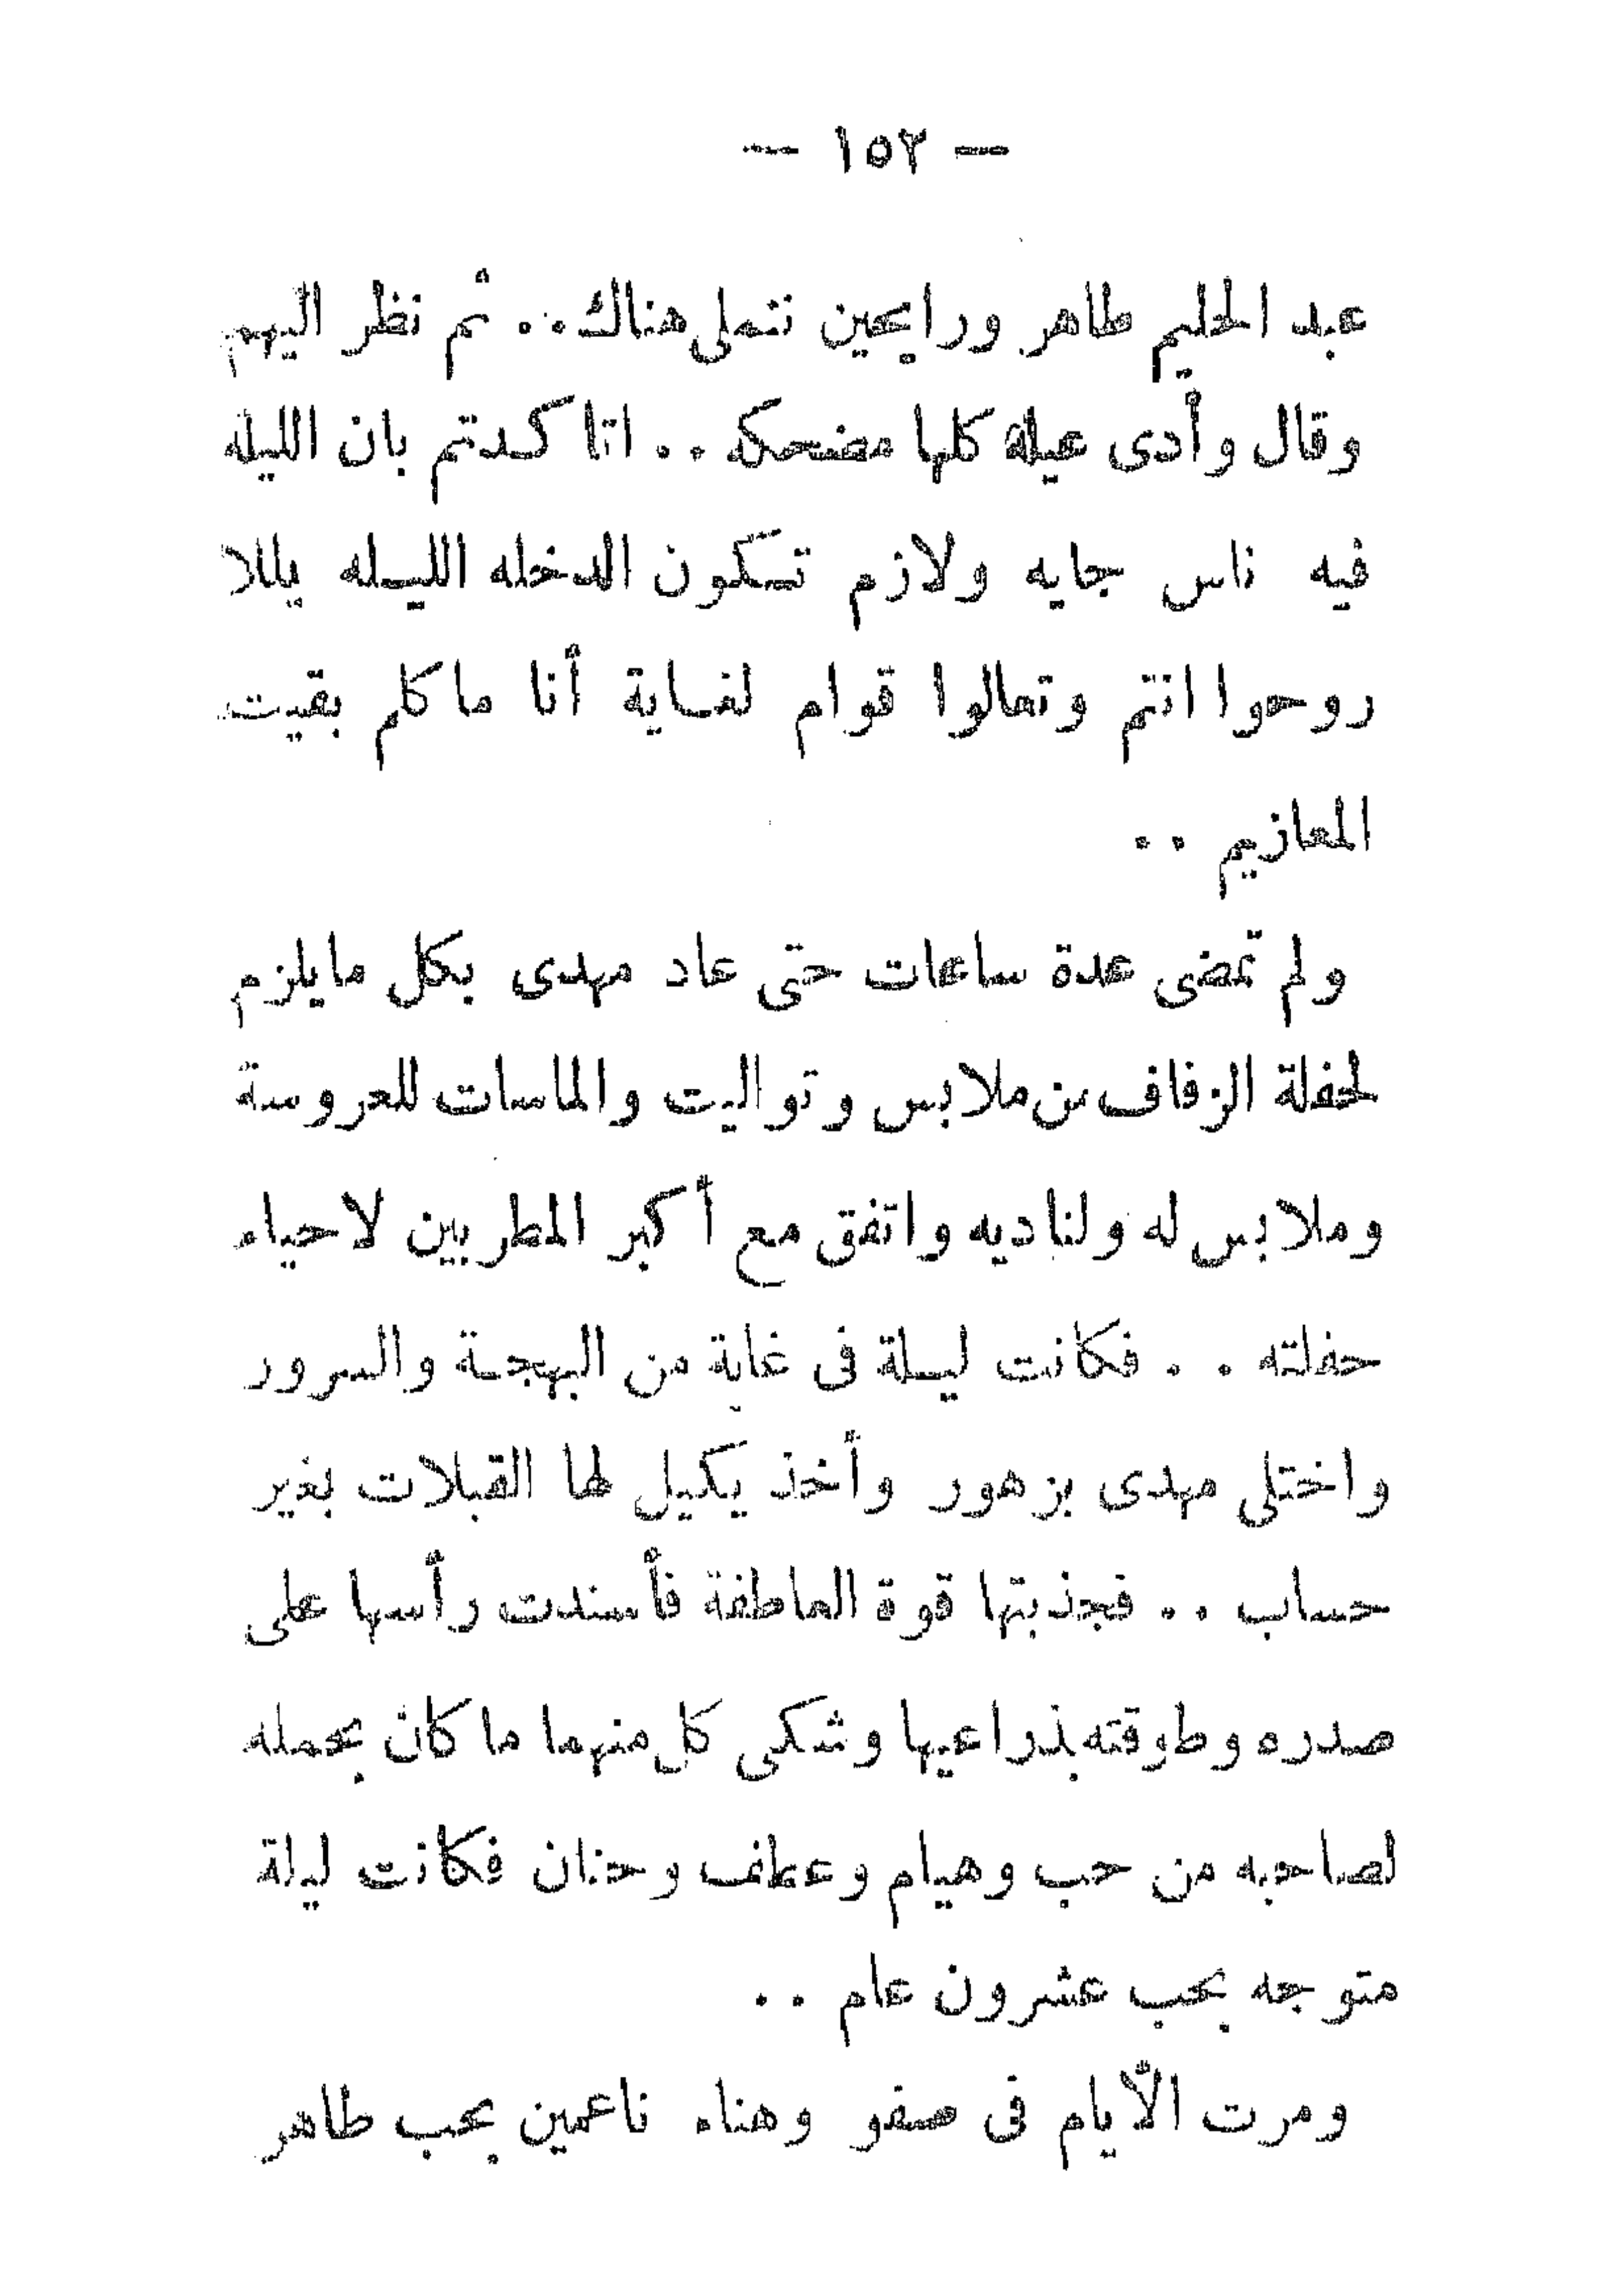 — ١٥٢ —
عبد الحليم طاهر ورايحين نتملى هناك .. ثم نظر اليهم
وقال وأدى عيلة كلها مضحكه .. اتأكدتم بان الليله
فيه ناس جايه ولازم تكون الدخله الليله يللا
روحوا انتم وتعالوا قوام لغاية أنا ماكلم بقيت
المعازيم ..
ولم تمضى عدة ساعات حتى عاد مهدى بكل مايلزم
لحفلة الزفاف من ملابس وتواليت والماسات للعروسة
وملابس له ولناديه واتفق مع أكبر المطربين لاحياء
حفلته .. فكانت ليلة فى غاية من البهجة والسرور
واختلى مهدى بزهور وأخذ يكيل لها القبلات بغير
حساب .. فجذبتها قوة العاطفة فأسندت رأسها على
صدره وطوقته بذراعيها وشكى كل منهما ما كان يحمله
لصاحبه من حب وهيام وعطف وحنان فكانت ليلة
متوجه بحب عشرون عام ..
ومرت الأيام فى صفو وهناء ناعمين بحب طاهر